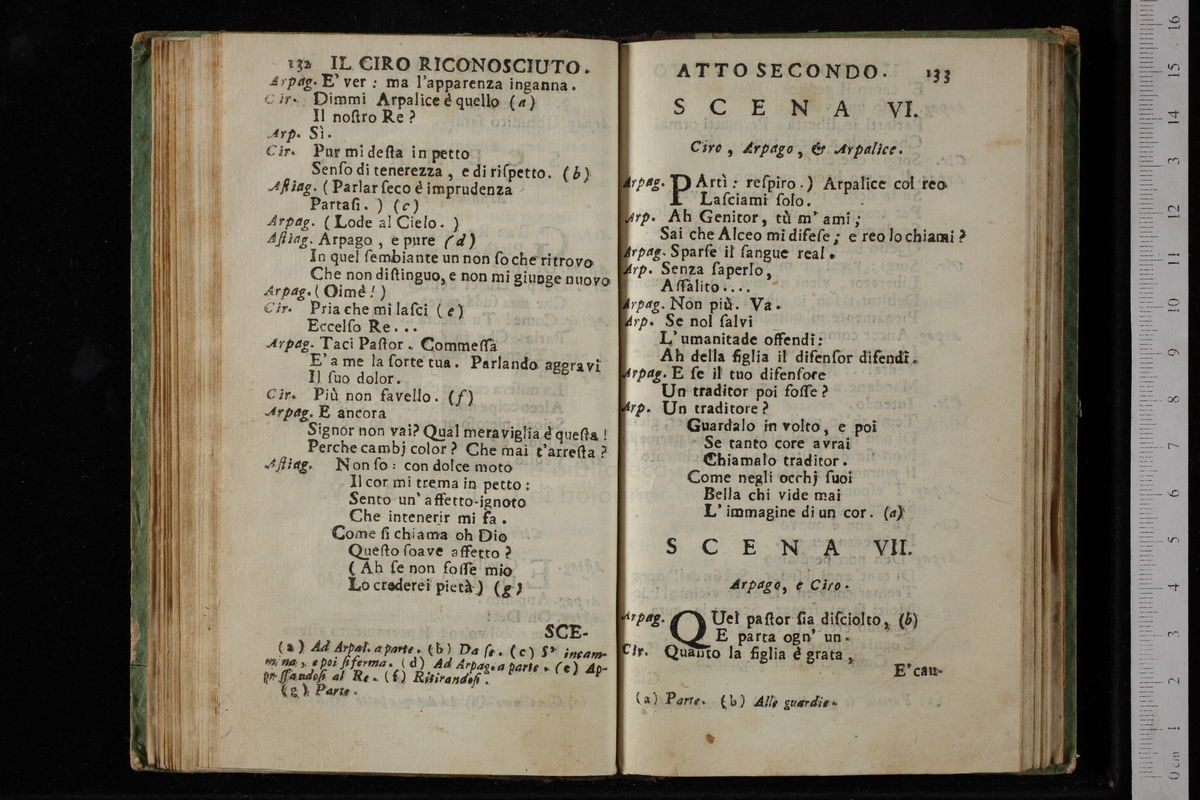 132 IL CIRO RICONOSCIUTO.
Arpag. E' ver : ma l'apparenza inganna.
Cir. Dimmi Arpalice è quello (a)
Il noſtro Re ?
Arp. Sì.
Cir. Pur mi deſta in petto
Senſo di tenerezza , e di riſpetto. (b)
Aſtiag. ( Parlar ſeco è imprudenza
Partaſi. ) (c)
Arpag. ( Lode al Cielo. )
Aſtiag. Arpago , e pure (d)
In quel ſembiante un non ſo che ritrovo
Che non diſtinguo, e non mi giunge nuovo
Arpag. ( Oimè ! )
Cir. Pria che mi laſci (e)
Eccelſo Re...
Arpag. Taci Paſtor . Commeſſa
E' a me la ſorte tua. Parlando aggravi
Il ſuo dolor.
Cir. Più non favello. (f)
Arpag. E ancora
Signor non vai? Qual meraviglia è queſta !
Perche cambj color ? Che mai t'arreſta ?
Aſtiag. Non ſo : con dolce moto
Il cor mi trema in petto :
Sento un' affetto-ignoto
Che intenerir mi fa .
Come ſi chiama oh Dio
Queſto ſoave affetto ?
( Ah ſe non foſſe mio
Lo crederei pietà ) (g)
SCE-
(a) Ad Arpal. a parte. (b) Da ſe. (c) S' incam-
mina, e poi ſi ferma. (d) Ad Arpag. a parte. (e) Ap-
preſſandoſi al Re. (f) Ritirandoſi.
(g) Parte.
ATTO SECONDO. 133
SCENA VI.
Ciro , Arpago , & Arpalice.
Arpag. PArtì : reſpiro.) Arpalice col reo
Laſciami ſolo.
Arp. Ah Genitor, tù m' ami ;
Sai che Alceo mi difeſe ; e reo lo chiami ?
Arpag. Sparſe il ſangue real.
Arp. Senza ſaperlo,
Aſſalito....
Arpag. Non più. Va.
Arp. Se nol ſalvi
L' umanitade offendi:
Ah della figlia il difenſor difendi.
Arpag. E ſe il tuo difenſore
Un traditor poi foſſe ?
Arp. Un traditore ?
Guardalo in volto, e poi
Se tanto core avrai
Chiamalo traditor.
Come negli occhj ſuoi
Bella chi vide mai
L' immagine di un cor. (a)
SCENA VII.
Arpago, e Ciro.
Arpag. QUel paſtor ſia diſciolto, (b)
E parta ogn' un.
Cir. Quanto la figlia è grata,
E' cau-
(a) Parte. (b) Alle guardie.